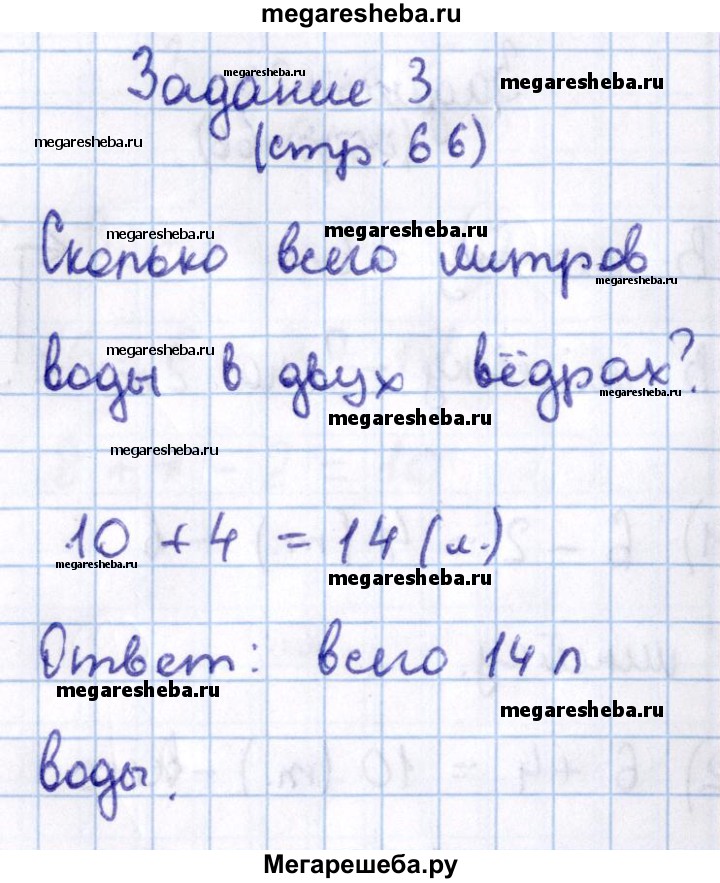 megaresheba.ru
Задание 3
megaresheba.ru
megaresheba.ru
megaresheba.ru
(стр. 66)
megaresheba.ru
megaresheba.ru
Сколько всего литров
megaresheba.ru
воды в двух вёдрах?
megaresheba.ru
megaresheba.ru
megaresheba.ru
megaresheba.ru
10 + 4 = 14 (л.)
megaresheba.ru
megaresheba.ru
Ответ: всего 14 л
megaresheba.ru
megaresheba.ru
воды.
Мегарешеба.ру